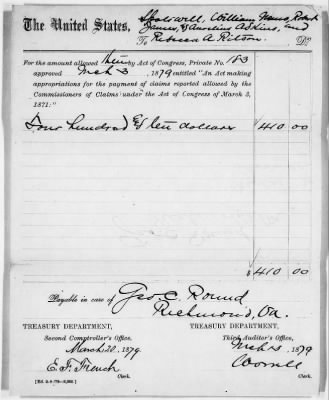 The United States,
Shotwell, William James, Robert
James, & Aurelius Adkins, and
To Rebecca A. Pilson. Dr.
For the amount allowed them by Act of Congress, Private No. 183
approved Mch 3, 1879, entitled "An Act making
appropriations for the payment of claims reported allowed by the
Commissioners of Claims under the Act of Congress of March 3,
1871."
Four hundred & ten dollars $410 00
$410 00
Payable in care of Geo. C. Round
Richmond, Va.
TREASURY DEPARTMENT, TREASURY DEPARTMENT,
Second Comptroller's Office, Third Auditor's Office,
March 20, 1879. Mch 1879
E. F. French
Clerk. Clerk.